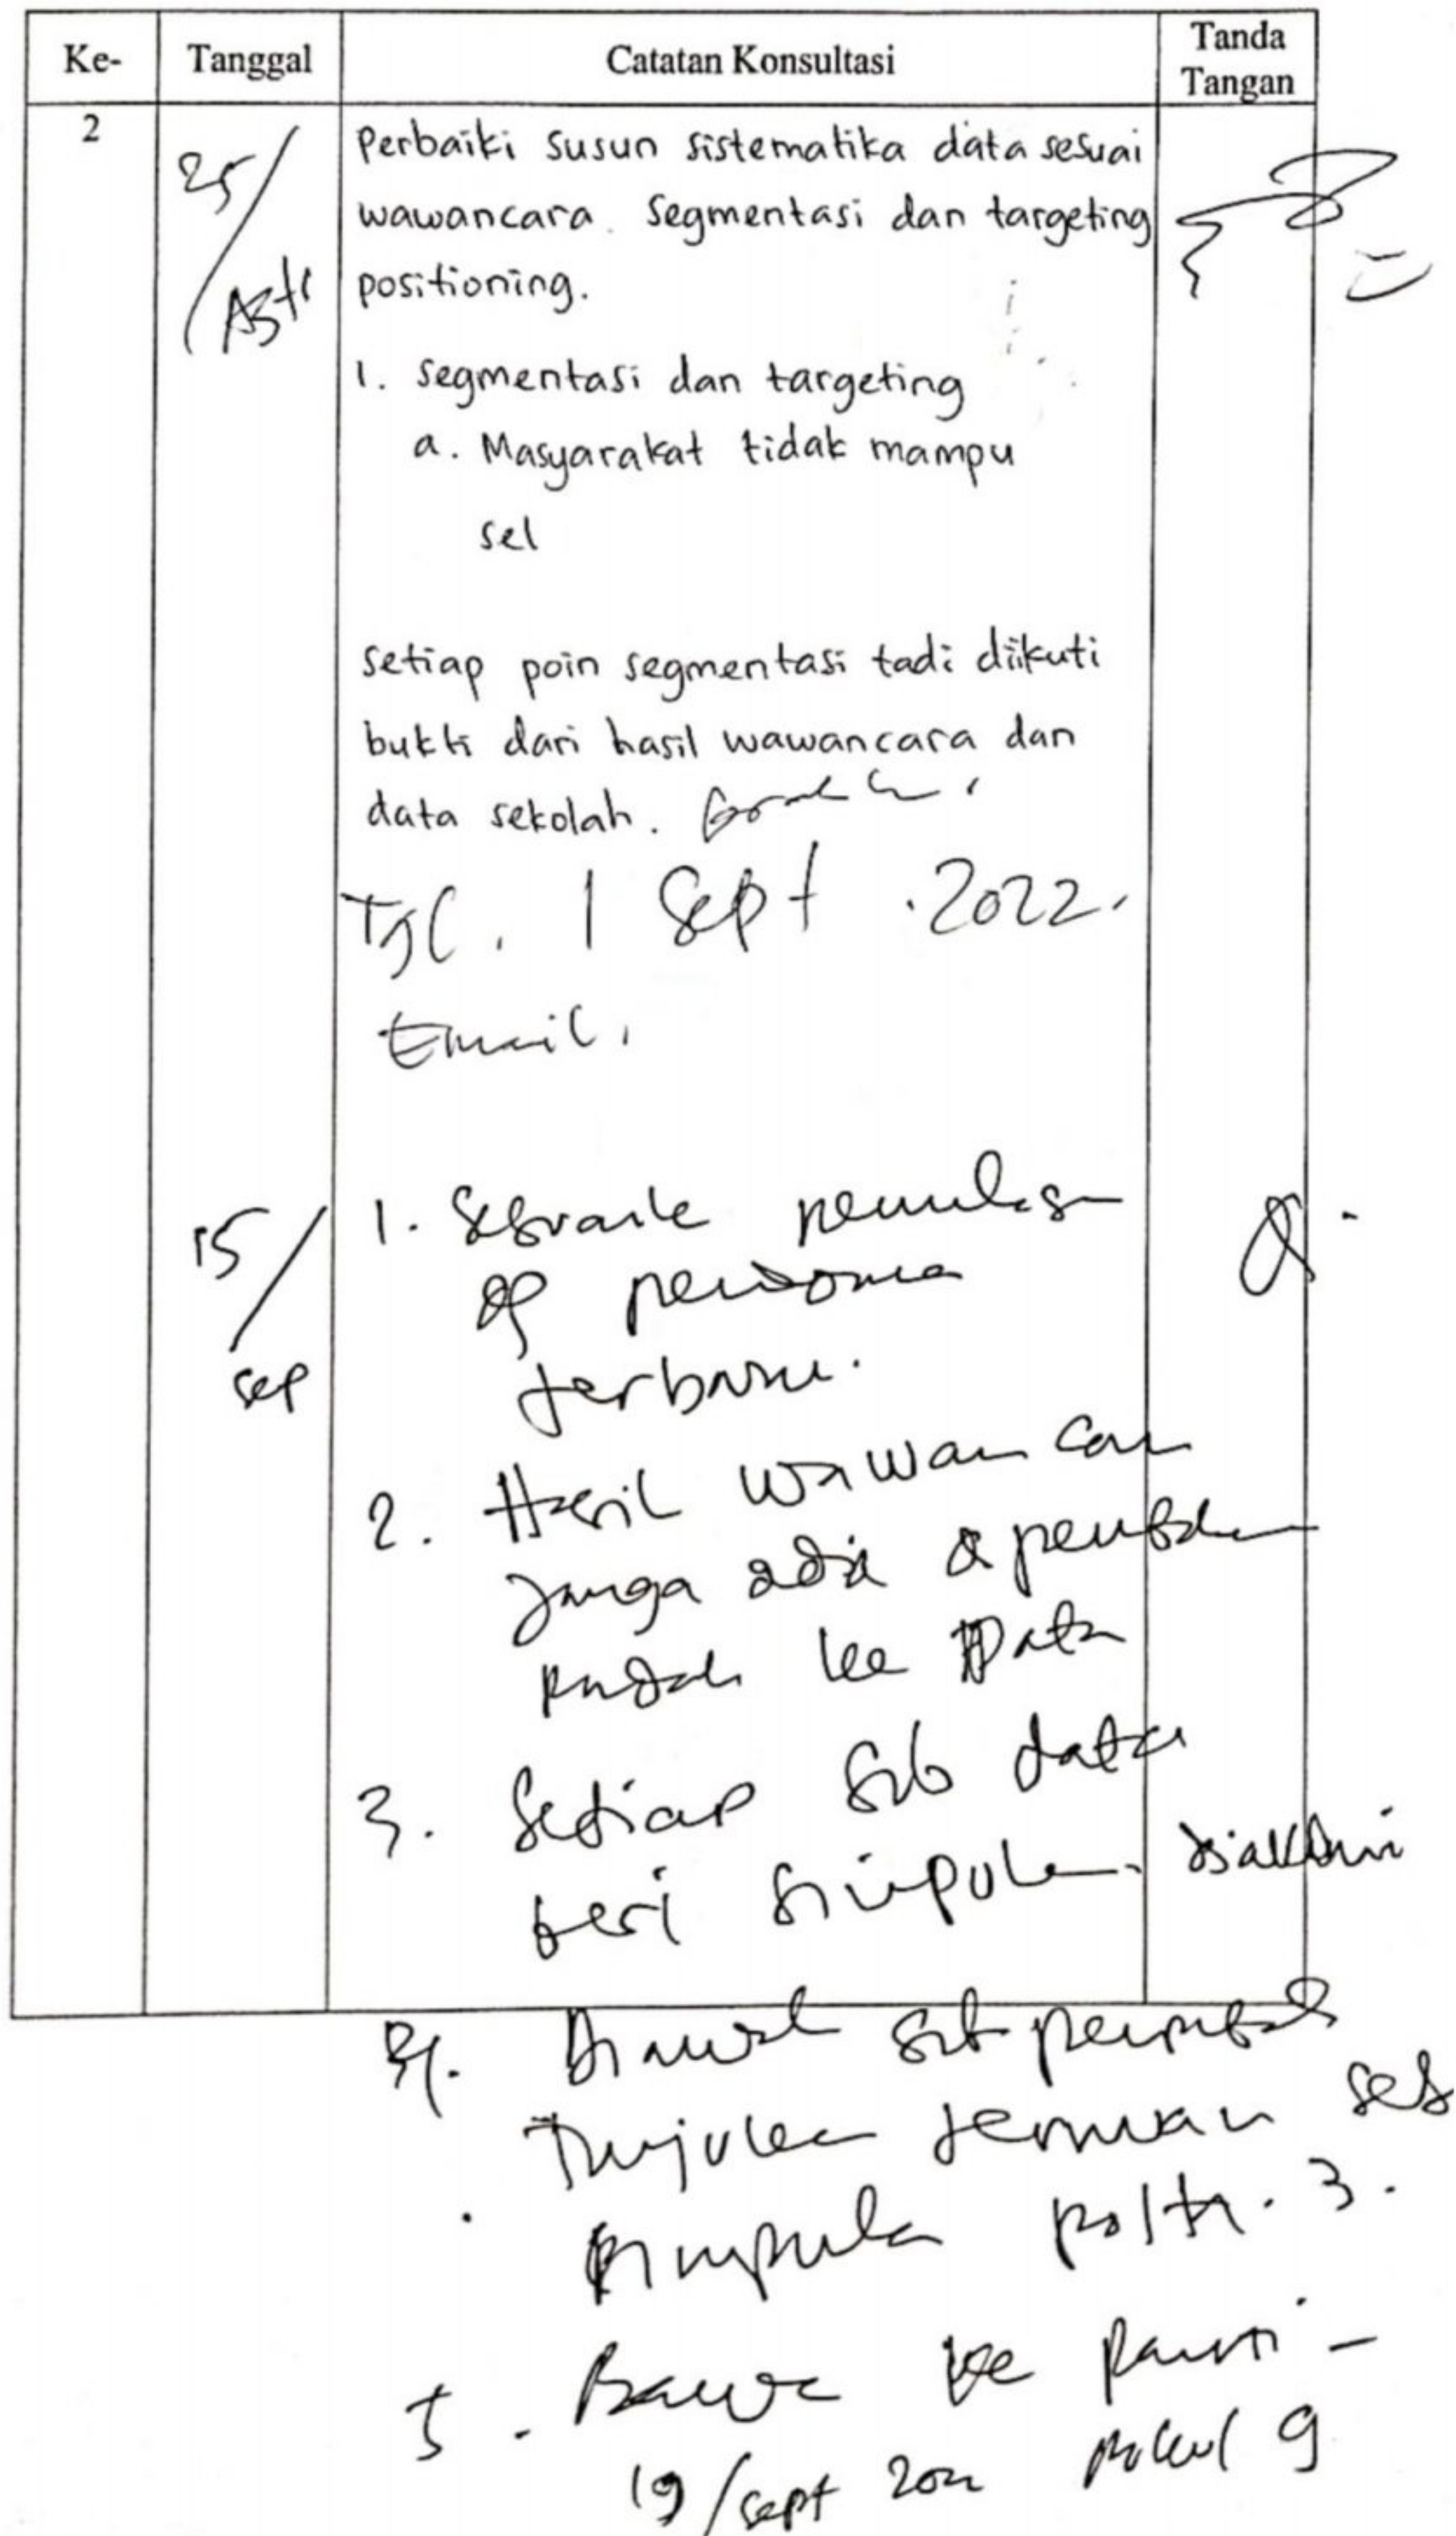 Ke- Tanggal Catatan Konsultasi Tanda Tangan
2
25/Agt
Perbaiki susun sistematika data sesuai
wawancara. Segmentasi dan targeting
positioning.
1. Segmentasi dan targeting
a. Masyarakat tidak mampu
sel
setiap poin segmentasi tadi diikuti
bukti dari hasil wawancara dan
data sekolah.
Tgl. 1 Sept. 2022.
Email.
15/sep
1. penulisan
terbaru.
2. Hasil wawancara
ada
ke Data
3. Setiap sub data
beri simpulan. diakhiri
4. Diawal sub
temuan
5. Bawa ke
19/sept 2022 pukul 9